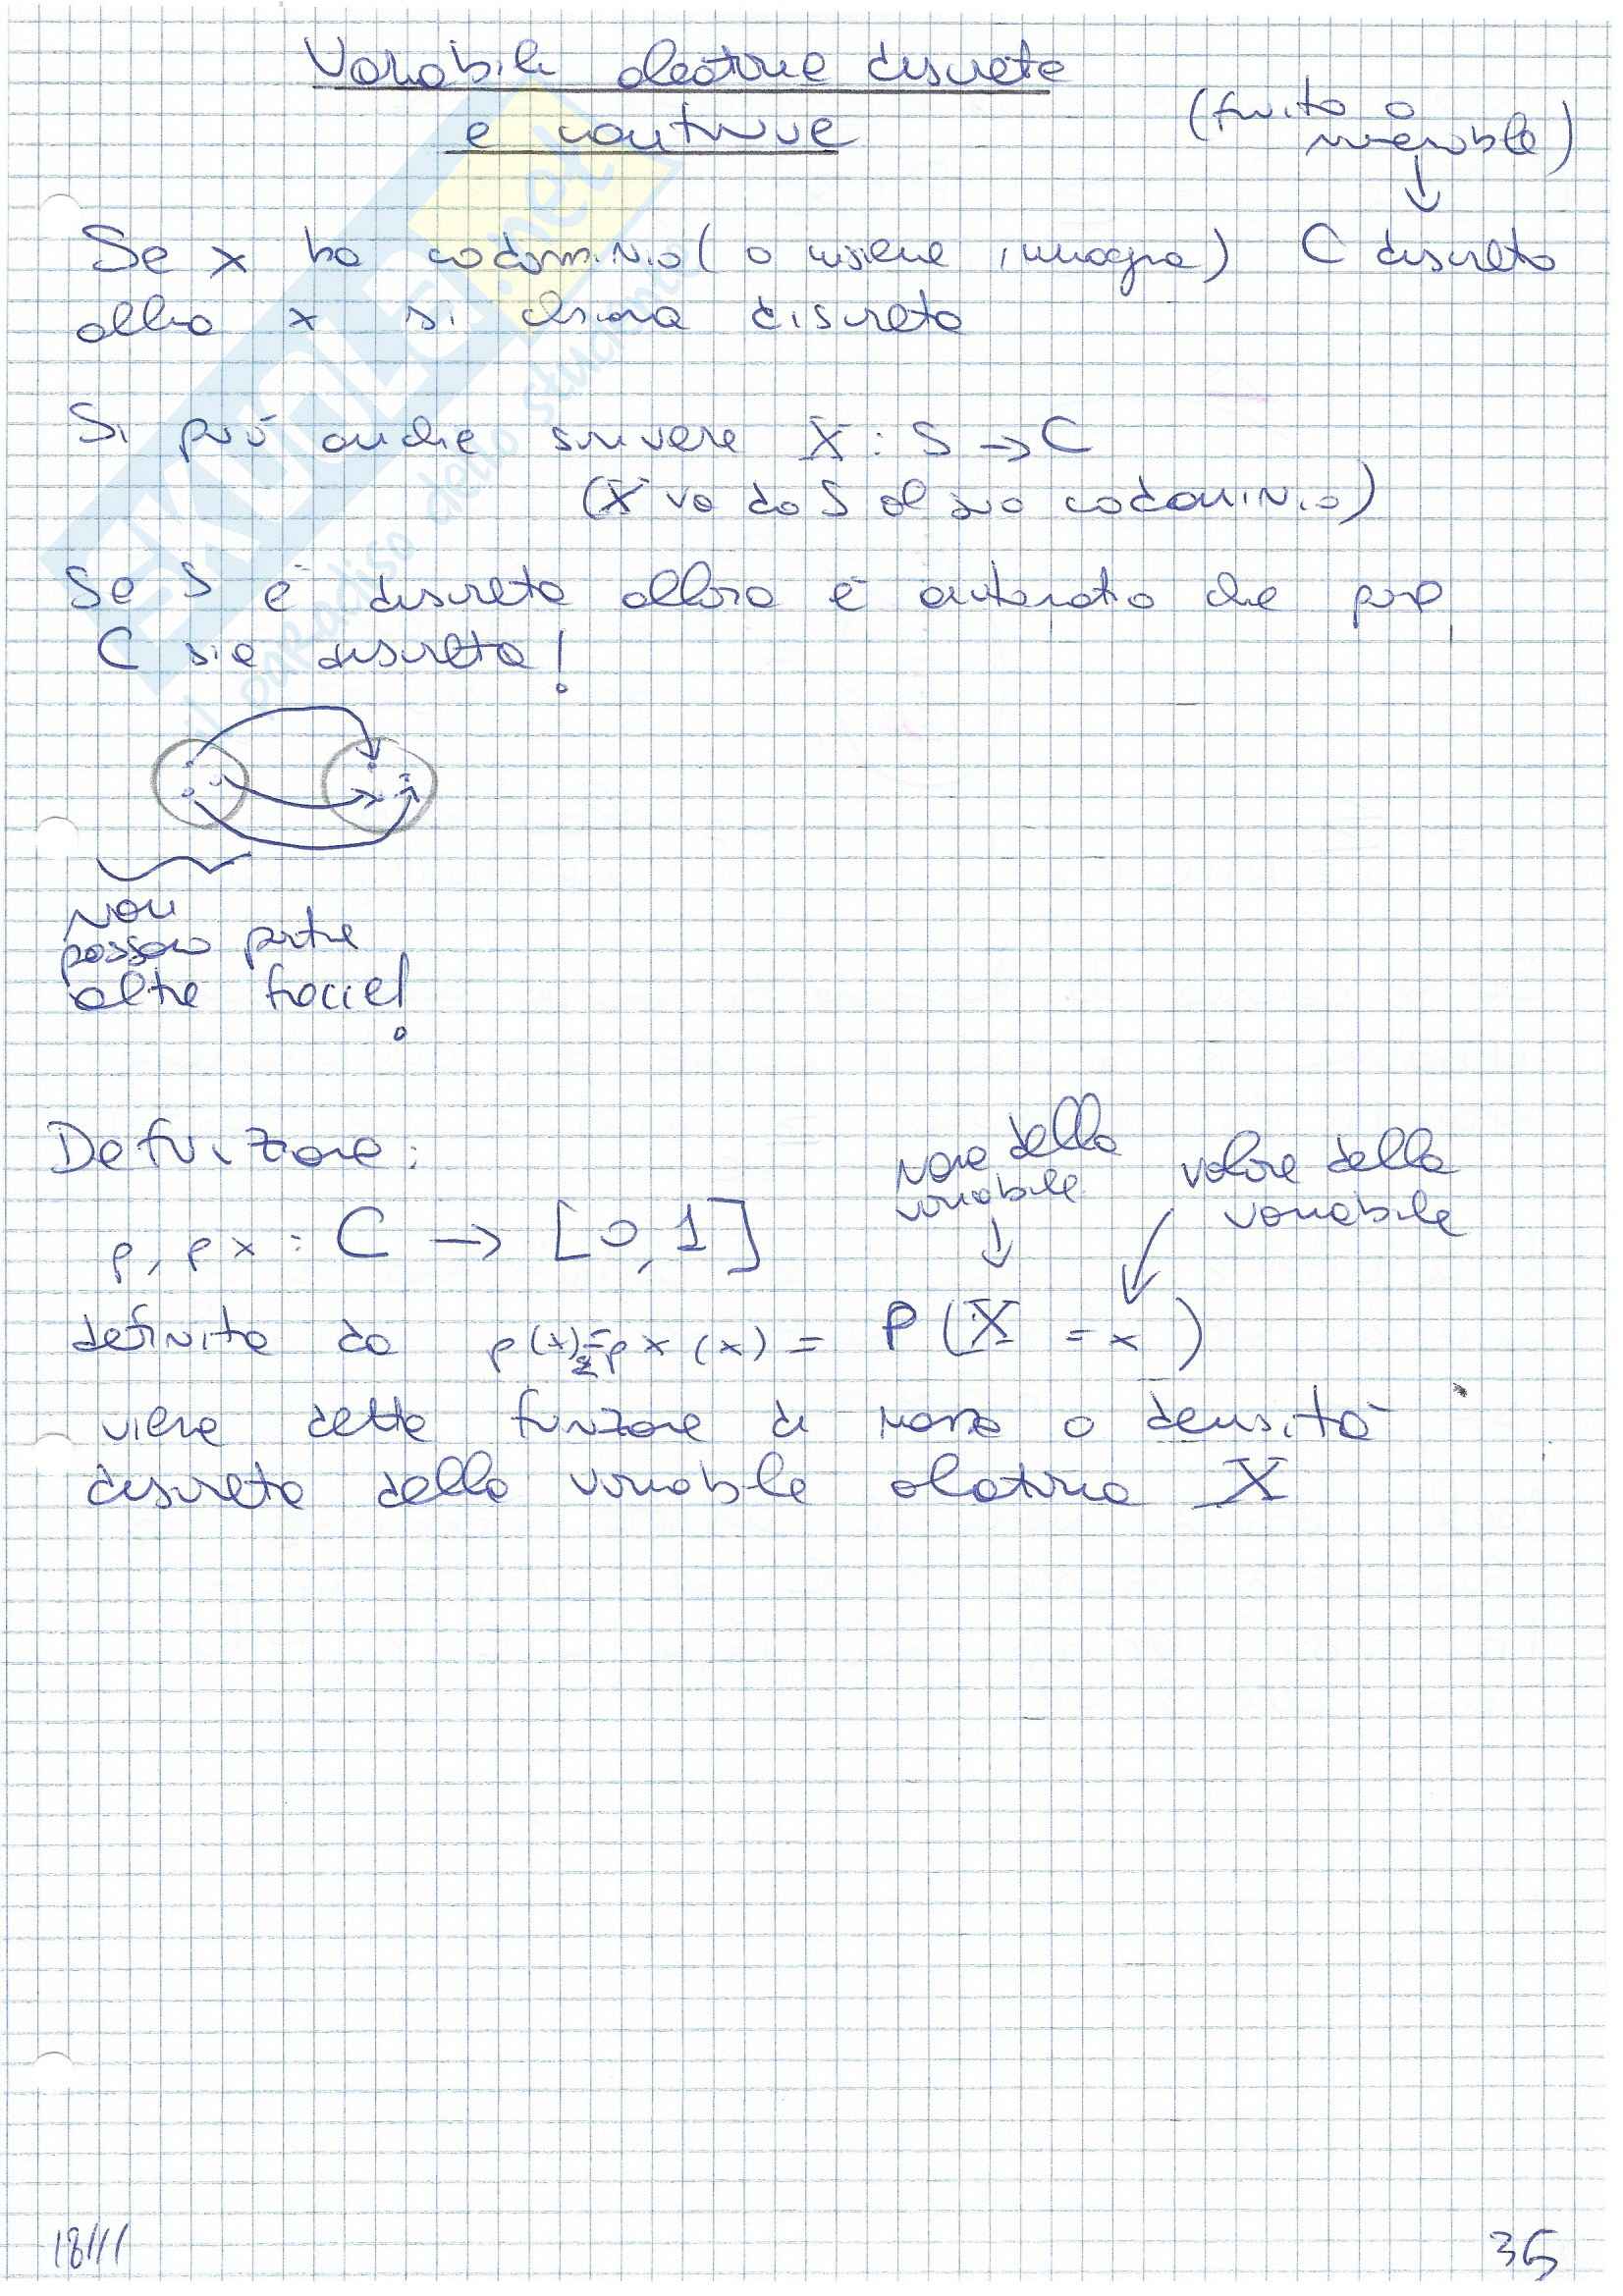 Variabili aleatorie discrete
e continue
(finito o
numerabile)
Se x ha codominio (o insieme immagine) C discreto
allora x si chiama discreta
Si può anche scrivere X : S → C
(X va da S al suo codominio)
Se S è discreto allora è automatico che pure
C sia discreto!
Non
possono partire
altre frecce!
Definizione:
nome della
variabile
valore della
variabile
p, px : C → [0,1]
definita da p(x) = px (x) = P(X = x)
viene detta funzione di massa o densità
discreta della variabile aleatoria X
18/11
36
SKUOLA.net
il paradiso dello studente